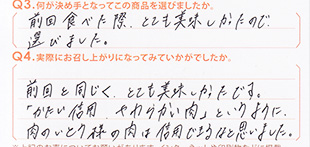 Q3.何が決め手となってこの商品を選びましたか。
前回食べた際、とても美味しかたので
選びました。
Q4.実際にお召し上がりになってみていかがでしたか。
前回と同じく、とても美味しかたです。
「かたい信用 やわらかい肉」というように、
肉のいとう様の肉は信用できるなと思いました。